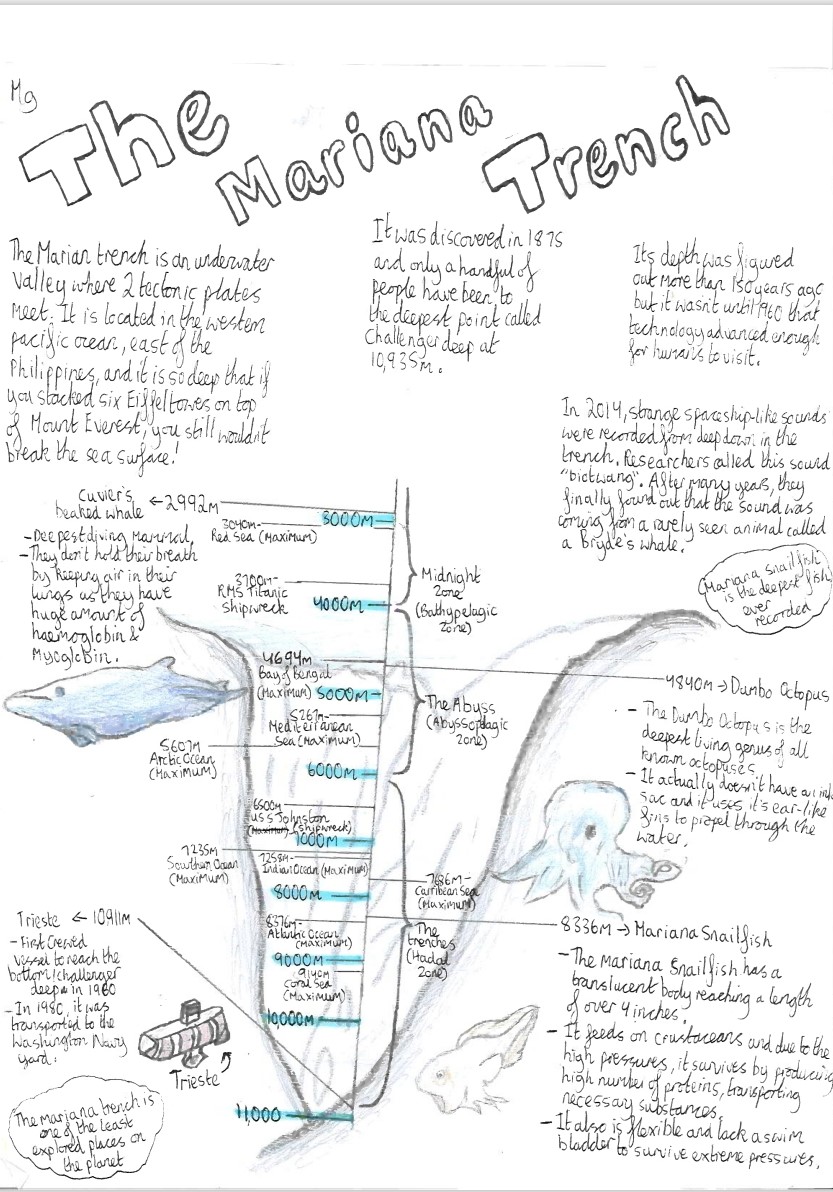 Mg
The
Mariana
Trench
The Marian trench is an underwater
Valley where 2 tectonic plates
meet. It is located in the western
pacific ocean, east of the
Philippines, and it is so deep that if
you stacked six Eiffel towes on top
of Mount Everest, you still wouldn't
break the sea surface!
It was discovered in 1875
and only a handful of
people have been to
the deepest point called
Challenger deep at
10,935m.
Its depth was figured
out more than 150 years ago
but it wasn't until 1960 that
technology advanced enough
for humans to visit.
In 2014, strange spaceship-like sounds
were recorded from deep down in the
trench. Researchers called this sound
"biotwang". After many years, they
finally found out that the sound was
coming from a rarely seen animal called
a Bryde's whale.
Mariana snailfish
is the deepest fish
ever
recorded
Cuvier's
beaked whale ← 2992m
- Deepest diving mammal.
- They don't hold their breath
by keeping air in their
lungs as they have
huge amount of
haemoglobin &
Myoglobin.
3000m
3040m-
Red Sea (Maximum)
3700m-
RMS Titanic
Shipwreck
4000m
Midnight
Zone
(Bathypelagic
Zone)
4694m
Bay of Bengal
(Maximum)
5000m
5267m-
Mediterranean
Sea (Maximum)
5607m
Arctic Ocean
(Maximum)
6000m
The Abyss
(Abyssopelagic
Zone)
4840m → Dumbo Octopus
- The Dumbo Octopus is the
deepest living genus of all
known octopuses.
- It actually doesn't have an ink
Sac and it uses it's ear-like
fins to propel through the
water.
6500m
USS Johnston
(Maximum) (shipwreck)
7000m
7235m
Southern Ocean
(Maximum)
7258m-
Indian Ocean (Maximum)
7686m-
Carribean Sea
(Maximum)
8000m
8376m-
Atlantic Ocean
(Maximum)
9000m
9140m
Coral Sea
(Maximum)
10,000m
11,000
The
trenches
(Hadal
Zone)
8336m → Mariana Snailfish
- The Mariana Snailfish has a
translucent body reaching a length
of over 4 inches.
- It feeds on crustaceans and due to the
high pressures, it survives by producing
high number of proteins, transporting
necessary substances.
- It also is flexible and lack a swim
bladder to survive extreme pressures.
Trieste ← 10911m
- First Crewed
vessel to reach the
bottom/challenger
deep in 1960
- In 1980, it was
transported to the
Washington Navy
yard.
Trieste
The mariana trench is
one of the least
explored places on
the planet